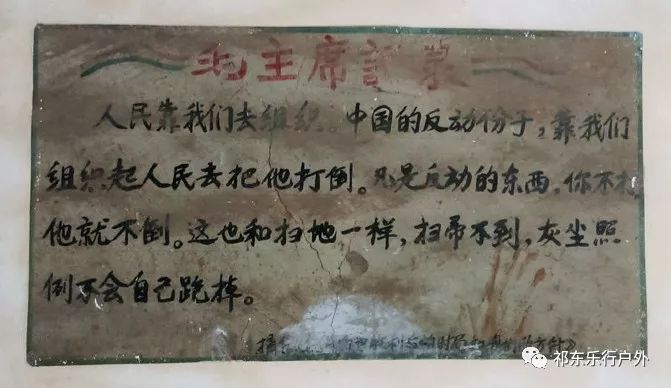 毛主席語录
人民靠我们去组织。中国的反动份子,靠我们
组织起人民去把他打倒。凡是反动的东西,你不打,
他就不倒。这也和扫地一样,扫帚不到,灰尘照
例不会自己跑掉。
胜利后的时局和我们的方针》
祁东乐行户外